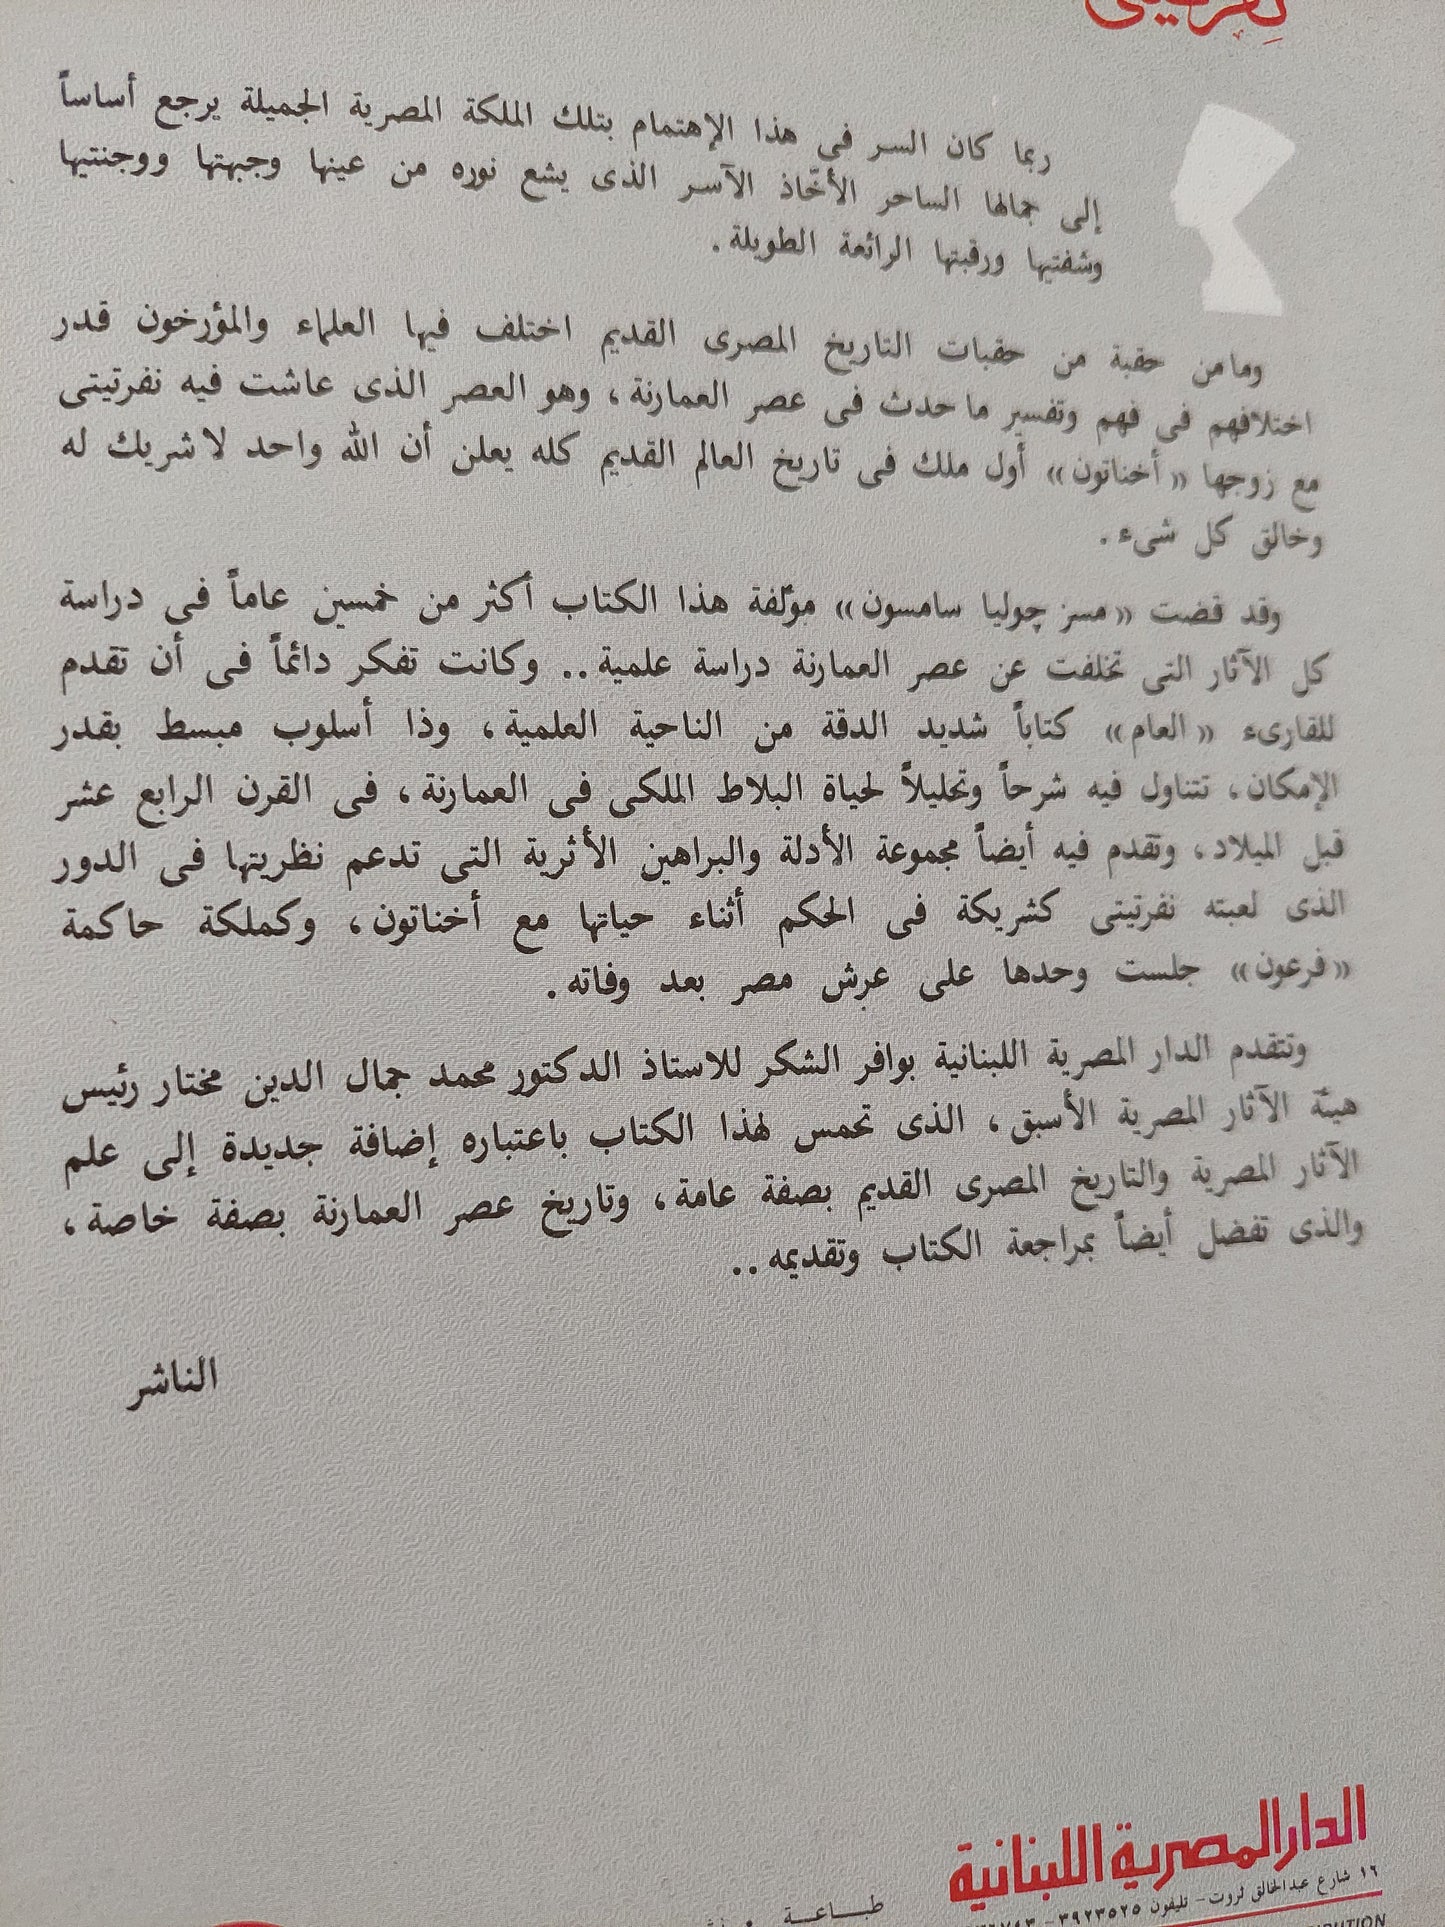 نفرتيتى
ربما كان السر فى هذا الإهتمام بتلك الملكة المصرية الجميلة يرجع أساساً
إلى جمالها الساحر الأخّاذ الآسر الذى يشع نوره من عينها وجبهتها ووجنتيها
وشفتيها ورقبتها الرائعة الطويلة .
ومامن حقبة من حقبات التاريخ المصرى القديم اختلف فيها العلماء والمؤرخون قدر
اختلافهم فى فهم وتفسير ماحدث فى عصر العمارنة ، وهو العصر الذى عاشت فيه نفرتيتى
مع زوجها « أخناتون » أول ملك فى تاريخ العالم القديم كله يعلن أن الله واحد لاشريك له
وخالق كل شىء .
وقد قضت « مسز چوليا سامسون » مؤلّفة هذا الكتاب أكثر من خمسين عاماً فى دراسة
كل الآثار التى تخلفت عن عصر العمارنة دراسة علمية .. وكانت تفكر دائماً فى أن تقدم
للقارىء « العام » كتاباً شديد الدقة من الناحية العلمية ، وذا أسلوب مبسط بقدر
الإمكان ، تتناول فيه شرحاً وتحليلاً لحياة البلاط الملكى فى العمارنة ، فى القرن الرابع عشر
قبل الميلاد ، وتقدم فيه أيضاً مجموعة الأدلة والبراهين الأثرية التى تدعم نظريتها فى الدور
الذى لعبته نفرتيتى كشريكة فى الحكم أثناء حياتها مع أخناتون ، وكملكة حاكمة
« فرعون » جلست وحدها على عرش مصر بعد وفاته .
وتتقدم الدار المصرية اللبنانية بوافر الشكر للاستاذ الدكتور محمد جمال الدين مختار رئيس
هيئة الآثار المصرية الأسبق ، الذى تحمس لهذا الكتاب باعتباره إضافة جديدة إلى علم
الآثار المصرية والتاريخ المصرى القديم بصفة عامة ، وتاريخ عصر العمارنة بصفة خاصة ،
والذى تفضل أيضاً بمراجعة الكتاب وتقديمه ..
الناشر
الدار المصرية اللبنانية
١٦ شارع عبد الخالق ثروت - تليفون ٣٩٢٣٥٢٥ -
طباعة